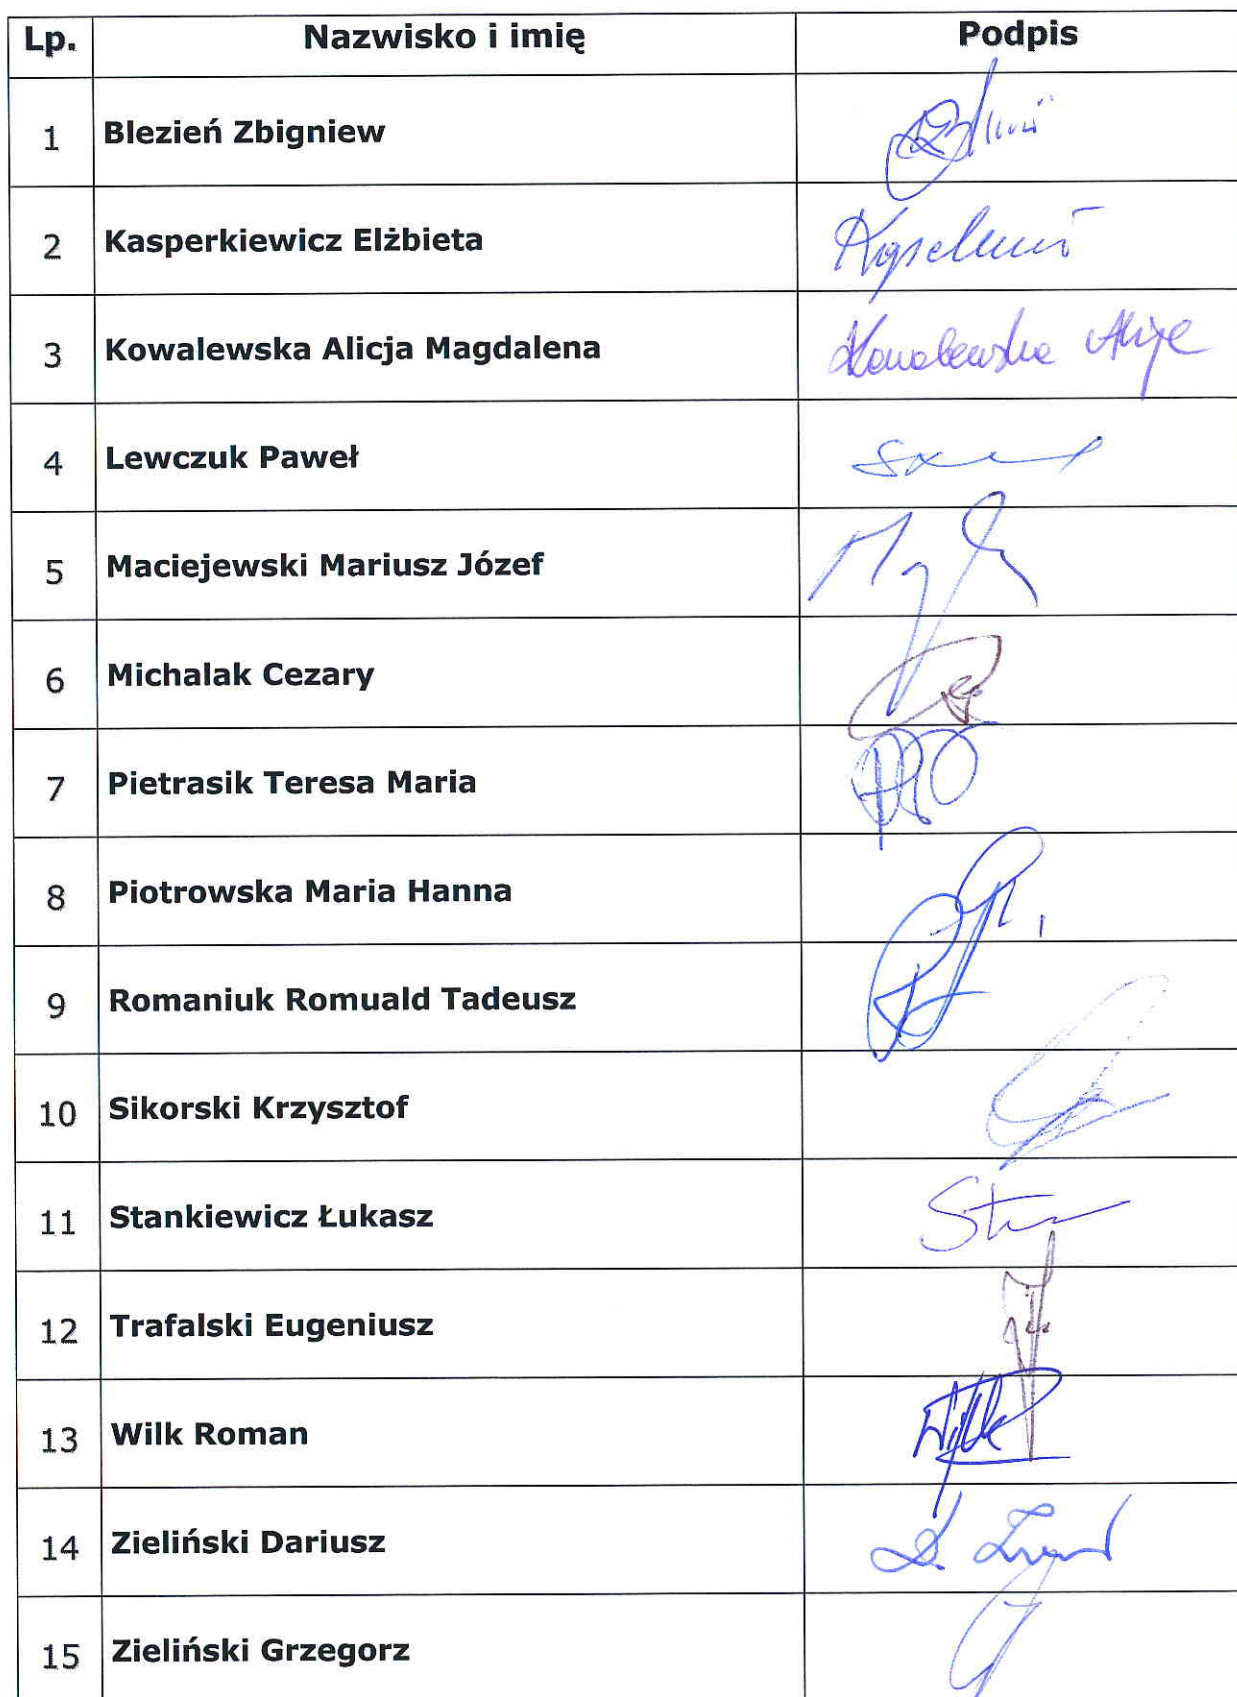 Lp. Nazwisko i imię Podpis
1 Blezień Zbigniew
2 Kasperkiewicz Elżbieta
3 Kowalewska Alicja Magdalena Kowalewska Alicja
4 Lewczuk Paweł
5 Maciejewski Mariusz Józef
6 Michalak Cezary
7 Pietrasik Teresa Maria
8 Piotrowska Maria Hanna
9 Romaniuk Romuald Tadeusz
10 Sikorski Krzysztof
11 Stankiewicz Łukasz
12 Trafalski Eugeniusz
13 Wilk Roman
14 Zieliński Dariusz
15 Zieliński Grzegorz